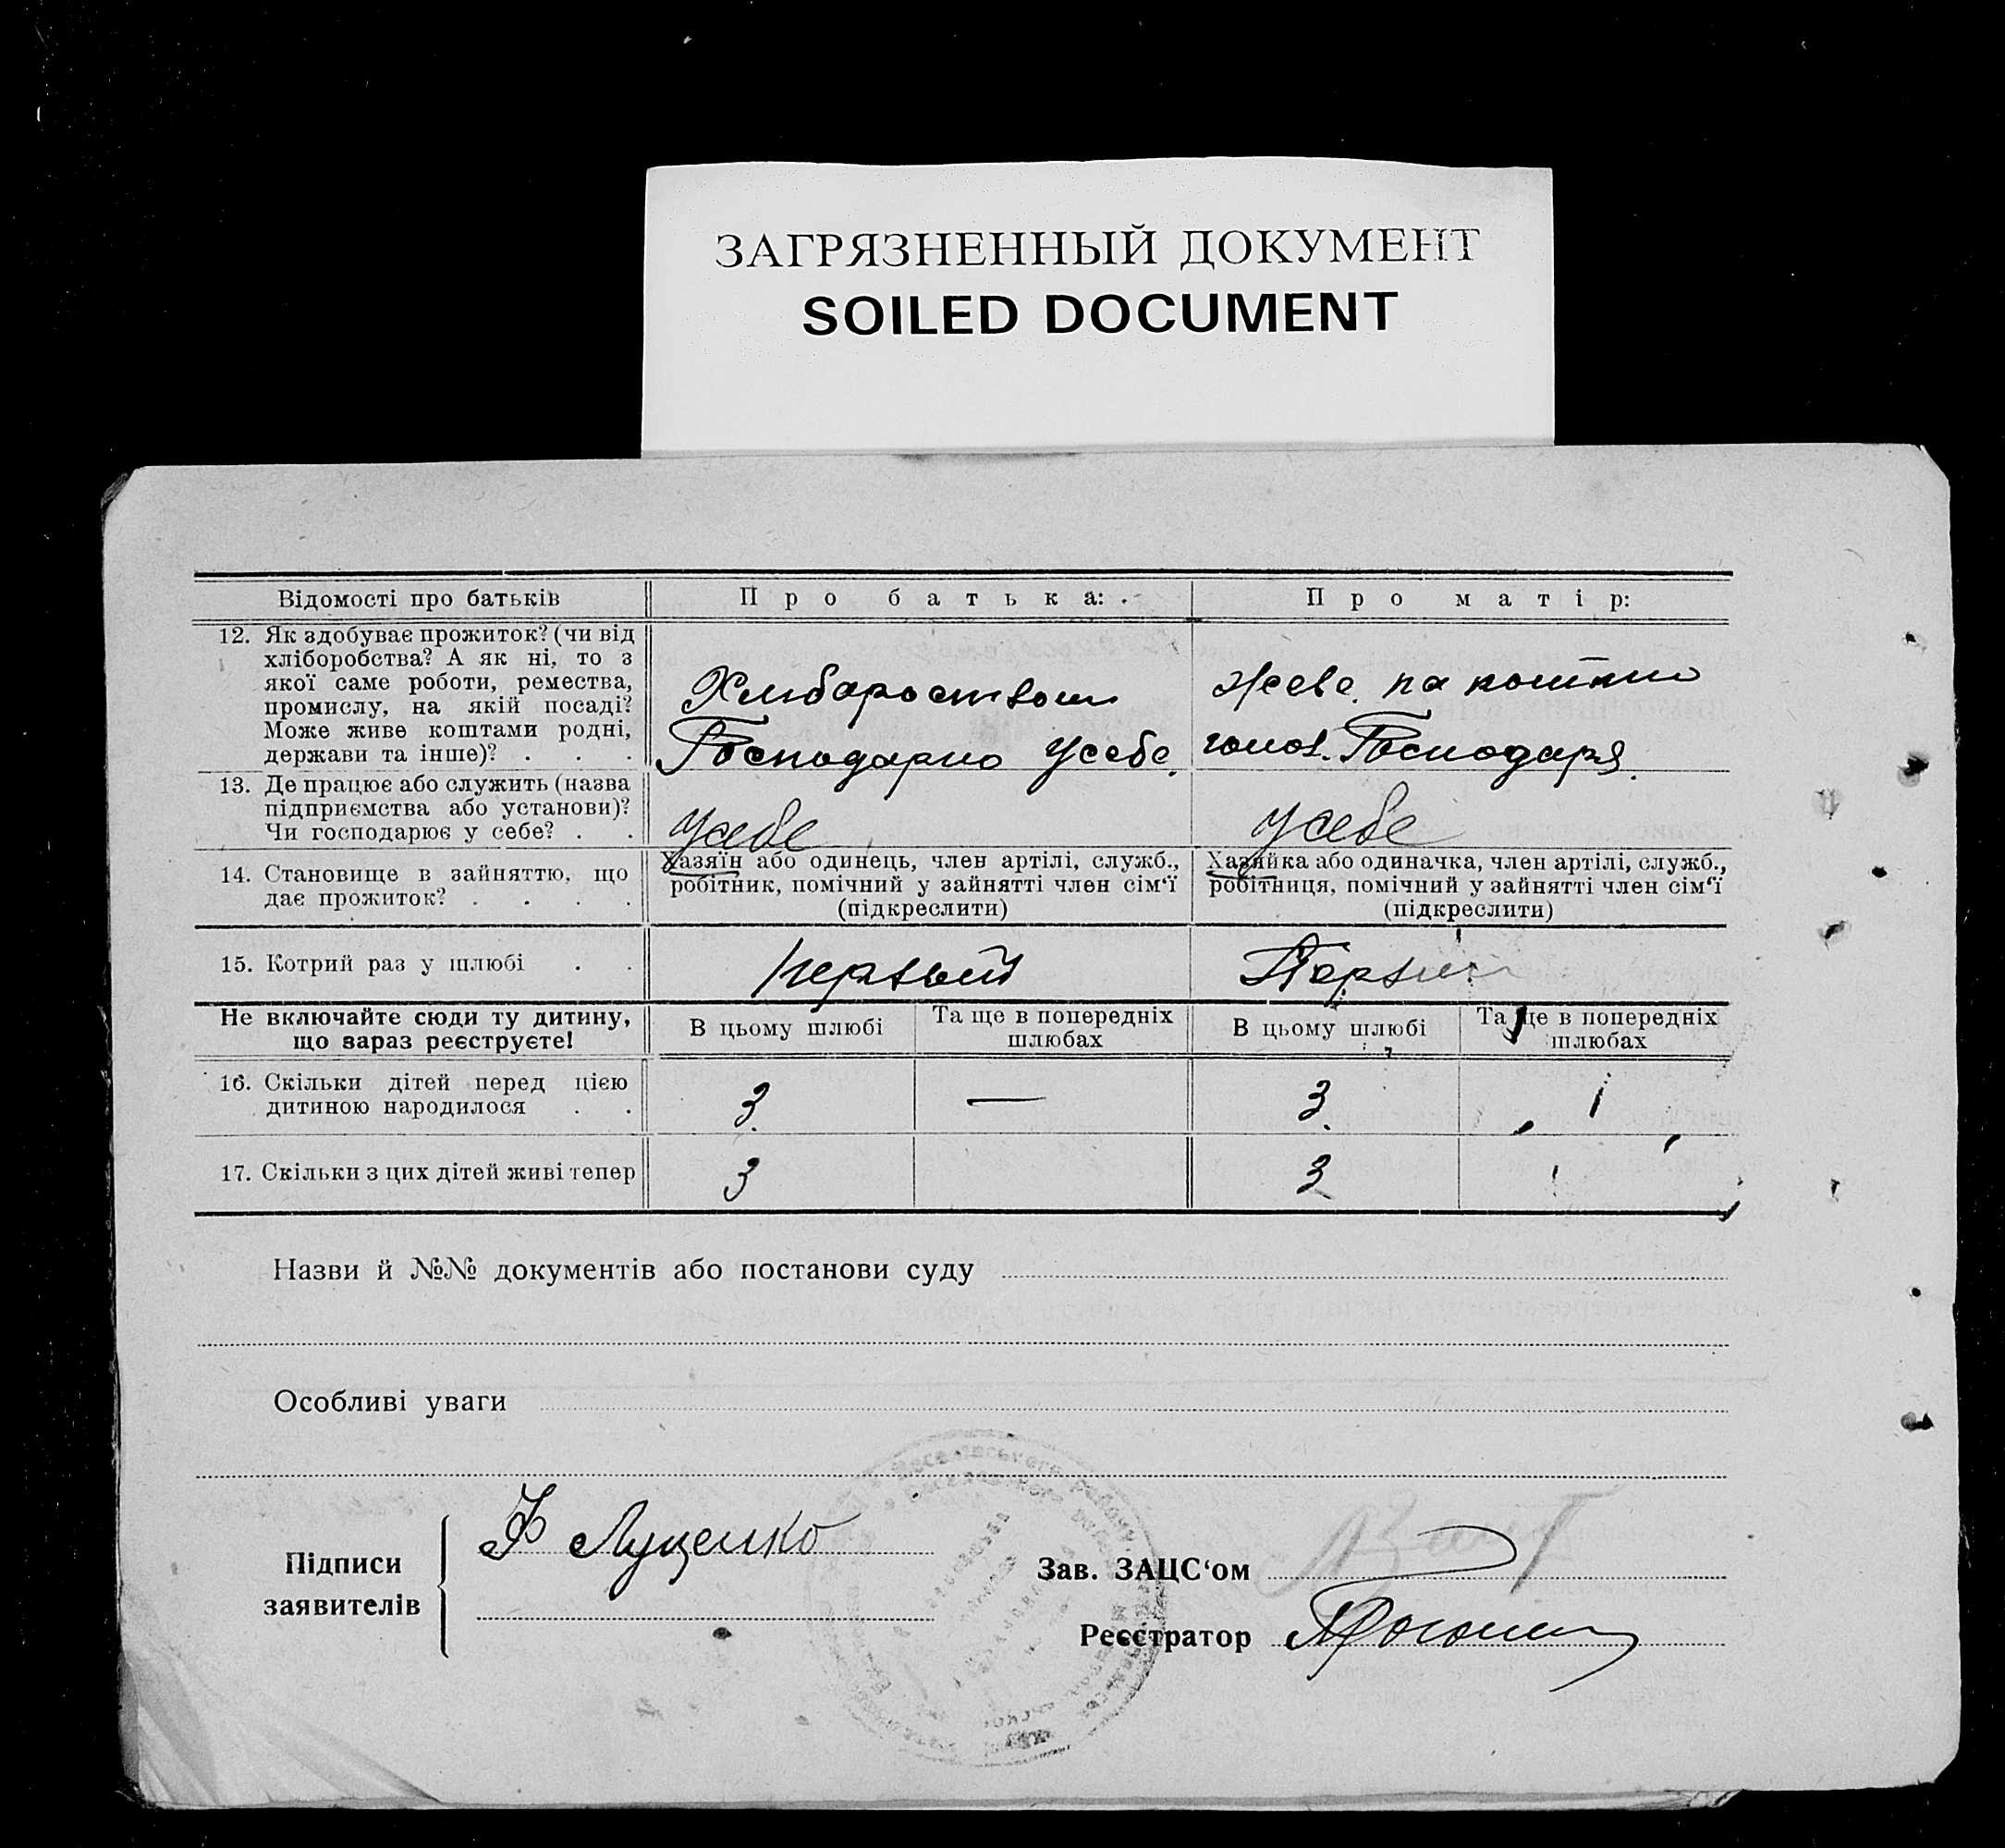 ЗАГРЯЗНЕННЫЙ ДОКУМЕНТ
SOILED DOCUMENT
Відомості про батьків
Про батька:
Про матір:
12. Як здобуває прожиток? (чи від
хліборобства? А як ні, то з
якої саме роботи, ремества,
промислу, на якій посаді?
Може живе коштами родні,
держави та інше)? . . .
Господарно Усебе.
Живе на кошти
Господаря.
13. Де працює або служить (назва
підприємства або установи)?
Чи господарює у себе? . .
Усебе
Усебе
14. Становище в зайняттю, що
дає прожиток? . . . .
Хазяїн або одинець, член артілі, служб.,
робітник, помічний у зайнятті член сім‘ї
(підкреслити)
Хазяйка або одиначка, член артілі, служб.,
робітниця, помічний у зайнятті член сім‘ї
(підкреслити)
15. Котрий раз у шлюбі . .
Первый
Не включайте сюди ту дитину,
що зараз реєструєте!
В цьому шлюбі
Та ще в попередніх
шлюбах
В цьому шлюбі
Та ще в попередніх
шлюбах
16. Скільки дітей перед цією
дитиною народилося . .
3.
—
3.
17. Скільки з цих дітей живі тепер
3
3
Назви й №№ документів або постанови суду
Особливі уваги
Підписи
заявителів
Луценко
Зав. ЗАЦС‘ом
Реєстратор